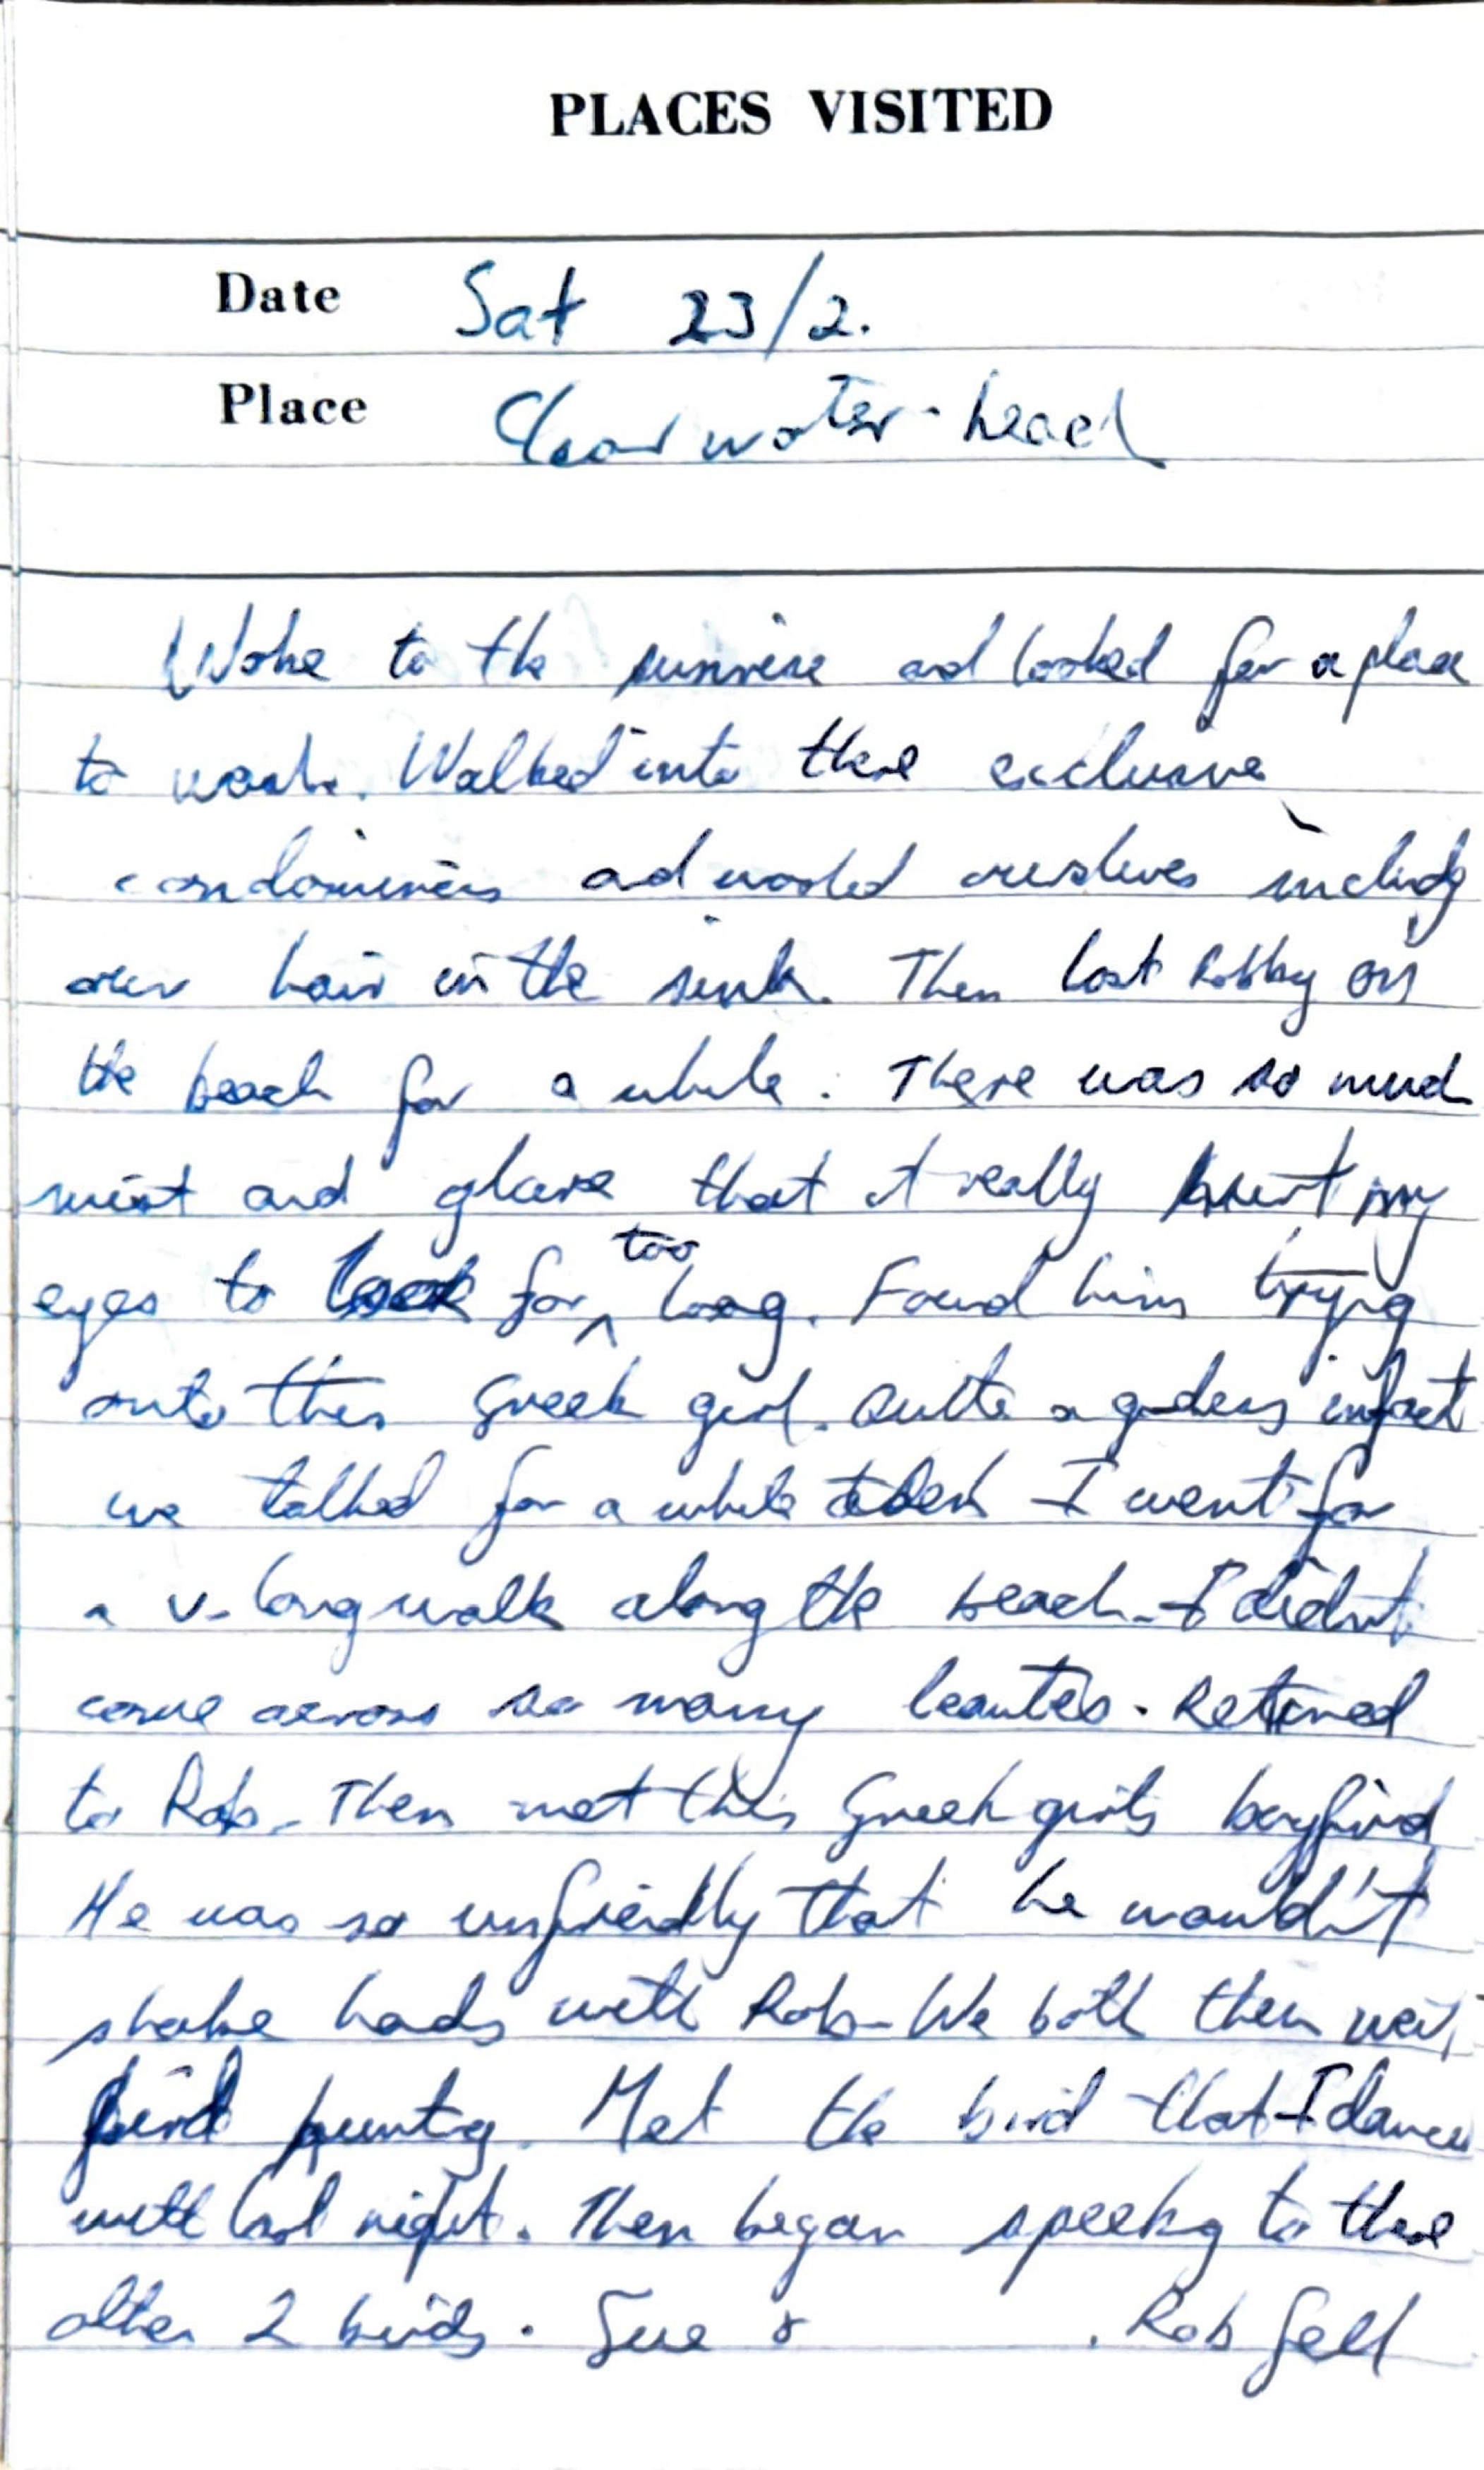 PLACES VISITED
Date Sat 23/2.
Place Clearwater head
Woke to the sunrise and looked for a place
to wash. Walked into these exclusive
condominiums and washed ourselves including
our hair in the sink. Then lost Robby on
the beach for a while. There was so much
mist and glare that it really hurt my
eyes to look for too long. Found him trying
onto this Greek girl. Quite a godess infact
we talked for a while I went for
a v. long walk along the beach. I didnt
come across so many beauties. Returned
to Rob. Then met this Greek girls boyfriend
He was so unfriendly that he wouldn't
shake hands with Rob. We both then went
bird hunting. Met the bird that I danced
with last night. Then began speeking to these
other 2 birds. Sue & . Rob fell